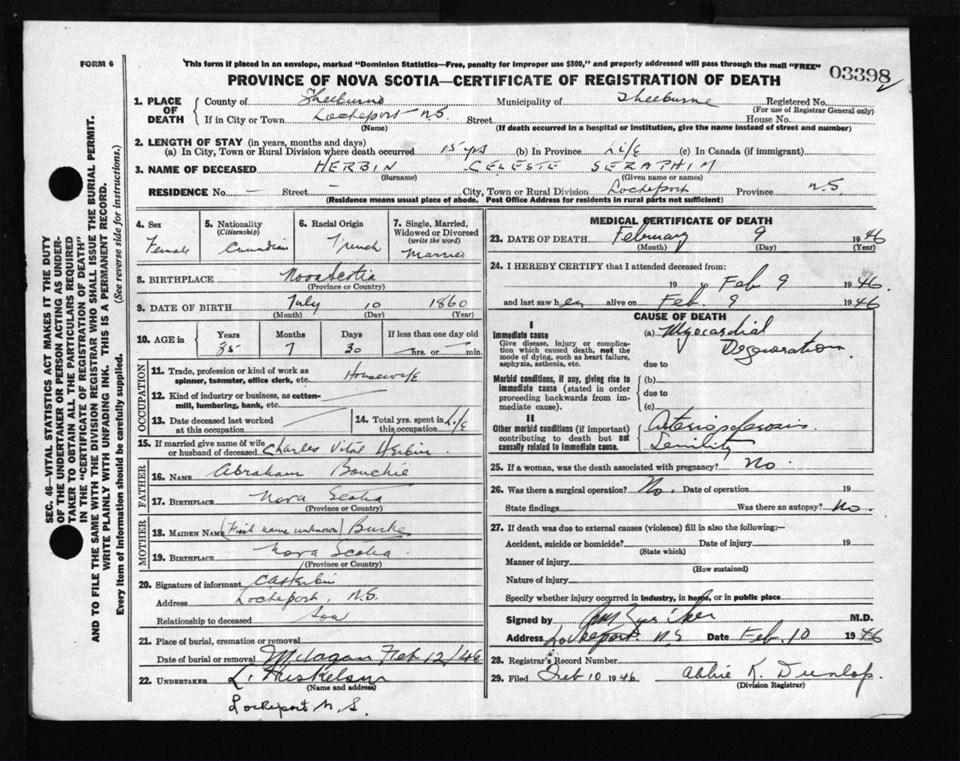 FORM 6
This form if placed in an envelope, marked "Dominion Statistics—Free, penalty for improper use $300," and properly addressed will pass through the mail "FREE"
PROVINCE OF NOVA SCOTIA—CERTIFICATE OF REGISTRATION OF DEATH
03398
SEC. 46—VITAL STATISTICS ACT MAKES IT THE DUTY
OF THE UNDERTAKER OR PERSON ACTING AS UNDER-
TAKER TO OBTAIN ALL THE PARTICULARS REQUIRED
IN THE "CERTIFICATE OF REGISTRATION OF DEATH"
AND TO FILE THE SAME WITH THE DIVISION REGISTRAR WHO SHALL ISSUE THE BURIAL PERMIT.
WRITE PLAINLY WITH UNFADING INK. THIS IS A PERMANENT RECORD.
Every item of information should be carefully supplied. (See reverse side for instructions.)
1. PLACE OF DEATH
County of Shelburne Municipality of Shelburne Registered No.
(For use of Registrar General only)
If in City or Town Lockeport N.S. Street House No.
(Name) (If death occurred in a hospital or institution, give the name instead of street and number)
2. LENGTH OF STAY (in years, months and days)
(a) In City, Town or Rural Division where death occurred 15 yrs (b) In Province Life (c) In Canada (if immigrant)
3. NAME OF DECEASED HERBIN CELESTE SERAPHIM
(Surname) (Given name or names)
RESIDENCE No. — Street — City, Town or Rural Division Lockeport Province N.S.
(Residence means usual place of abode. Post Office Address for residents in rural parts not sufficient)
4. Sex Female
5. Nationality (Citizenship) Canadian
6. Racial Origin French
7. Single, Married, Widowed or Divorced (write the word) Married
8. BIRTHPLACE Nova Scotia
(Province or Country)
9. DATE OF BIRTH July 10 1860
(Month) (Day) (Year)
10. AGE in Years Months Days If less than one day old
85 7 30 hrs. or min.
OCCUPATION
11. Trade, profession or kind of work as spinner, teamster, office clerk, etc. Housewife
12. Kind of industry or business, as cotton-mill, lumbering, bank, etc.
13. Date deceased last worked at this occupation
14. Total yrs. spent in this occupation Life
15. If married give name of wife or husband of deceased Charles Vital Herbin
FATHER
16. Name Abraham Bouchie
17. Birthplace Nova Scotia
(Province or Country)
MOTHER
18. Maiden Name (First name unknown) Burke
19. Birthplace Nova Scotia
(Province or Country)
20. Signature of informant
Address Lockeport, N.S.
Relationship to deceased Son
21. Place of burial, cremation or removal
Date of burial or removal Feb 12/46
22. UNDERTAKER L.
(Name and address)
Lockeport N.S.
MEDICAL CERTIFICATE OF DEATH
23. DATE OF DEATH February 9 1946
(Month) (Day) (Year)
24. I HEREBY CERTIFY that I attended deceased from
19 to Feb 9 1946
and last saw her alive on Feb. 9 1946
CAUSE OF DEATH
I
Immediate cause
Give disease, injury or complication which caused death, not the mode of dying, such as heart failure, asphyxia, asthenia, etc.
(a) Myocardial Degeneration
due to
Morbid conditions, if any, giving rise to immediate cause (stated in order proceeding backwards from immediate cause).
(b)
due to
(c)
II
Other morbid conditions (if important) contributing to death but not causally related to immediate cause.
Arteriosclerosis
Senility
25. If a woman, was the death associated with pregnancy? No.
26. Was there a surgical operation? No. Date of operation 19
State findings Was there an autopsy? No.
27. If death was due to external causes (violence) fill in also the following:—
Accident, suicide or homicide? Date of injury 19
(State which)
Manner of injury
(How sustained)
Nature of injury
Specify whether injury occurred in industry, in home, or in public place
Signed by M.D.
Address Lockeport N.S Date Feb. 10 1946
28. Registrar's Record Number
29. Filed Feb 10 1946 Abbie K. Dunlop
(Division Registrar)